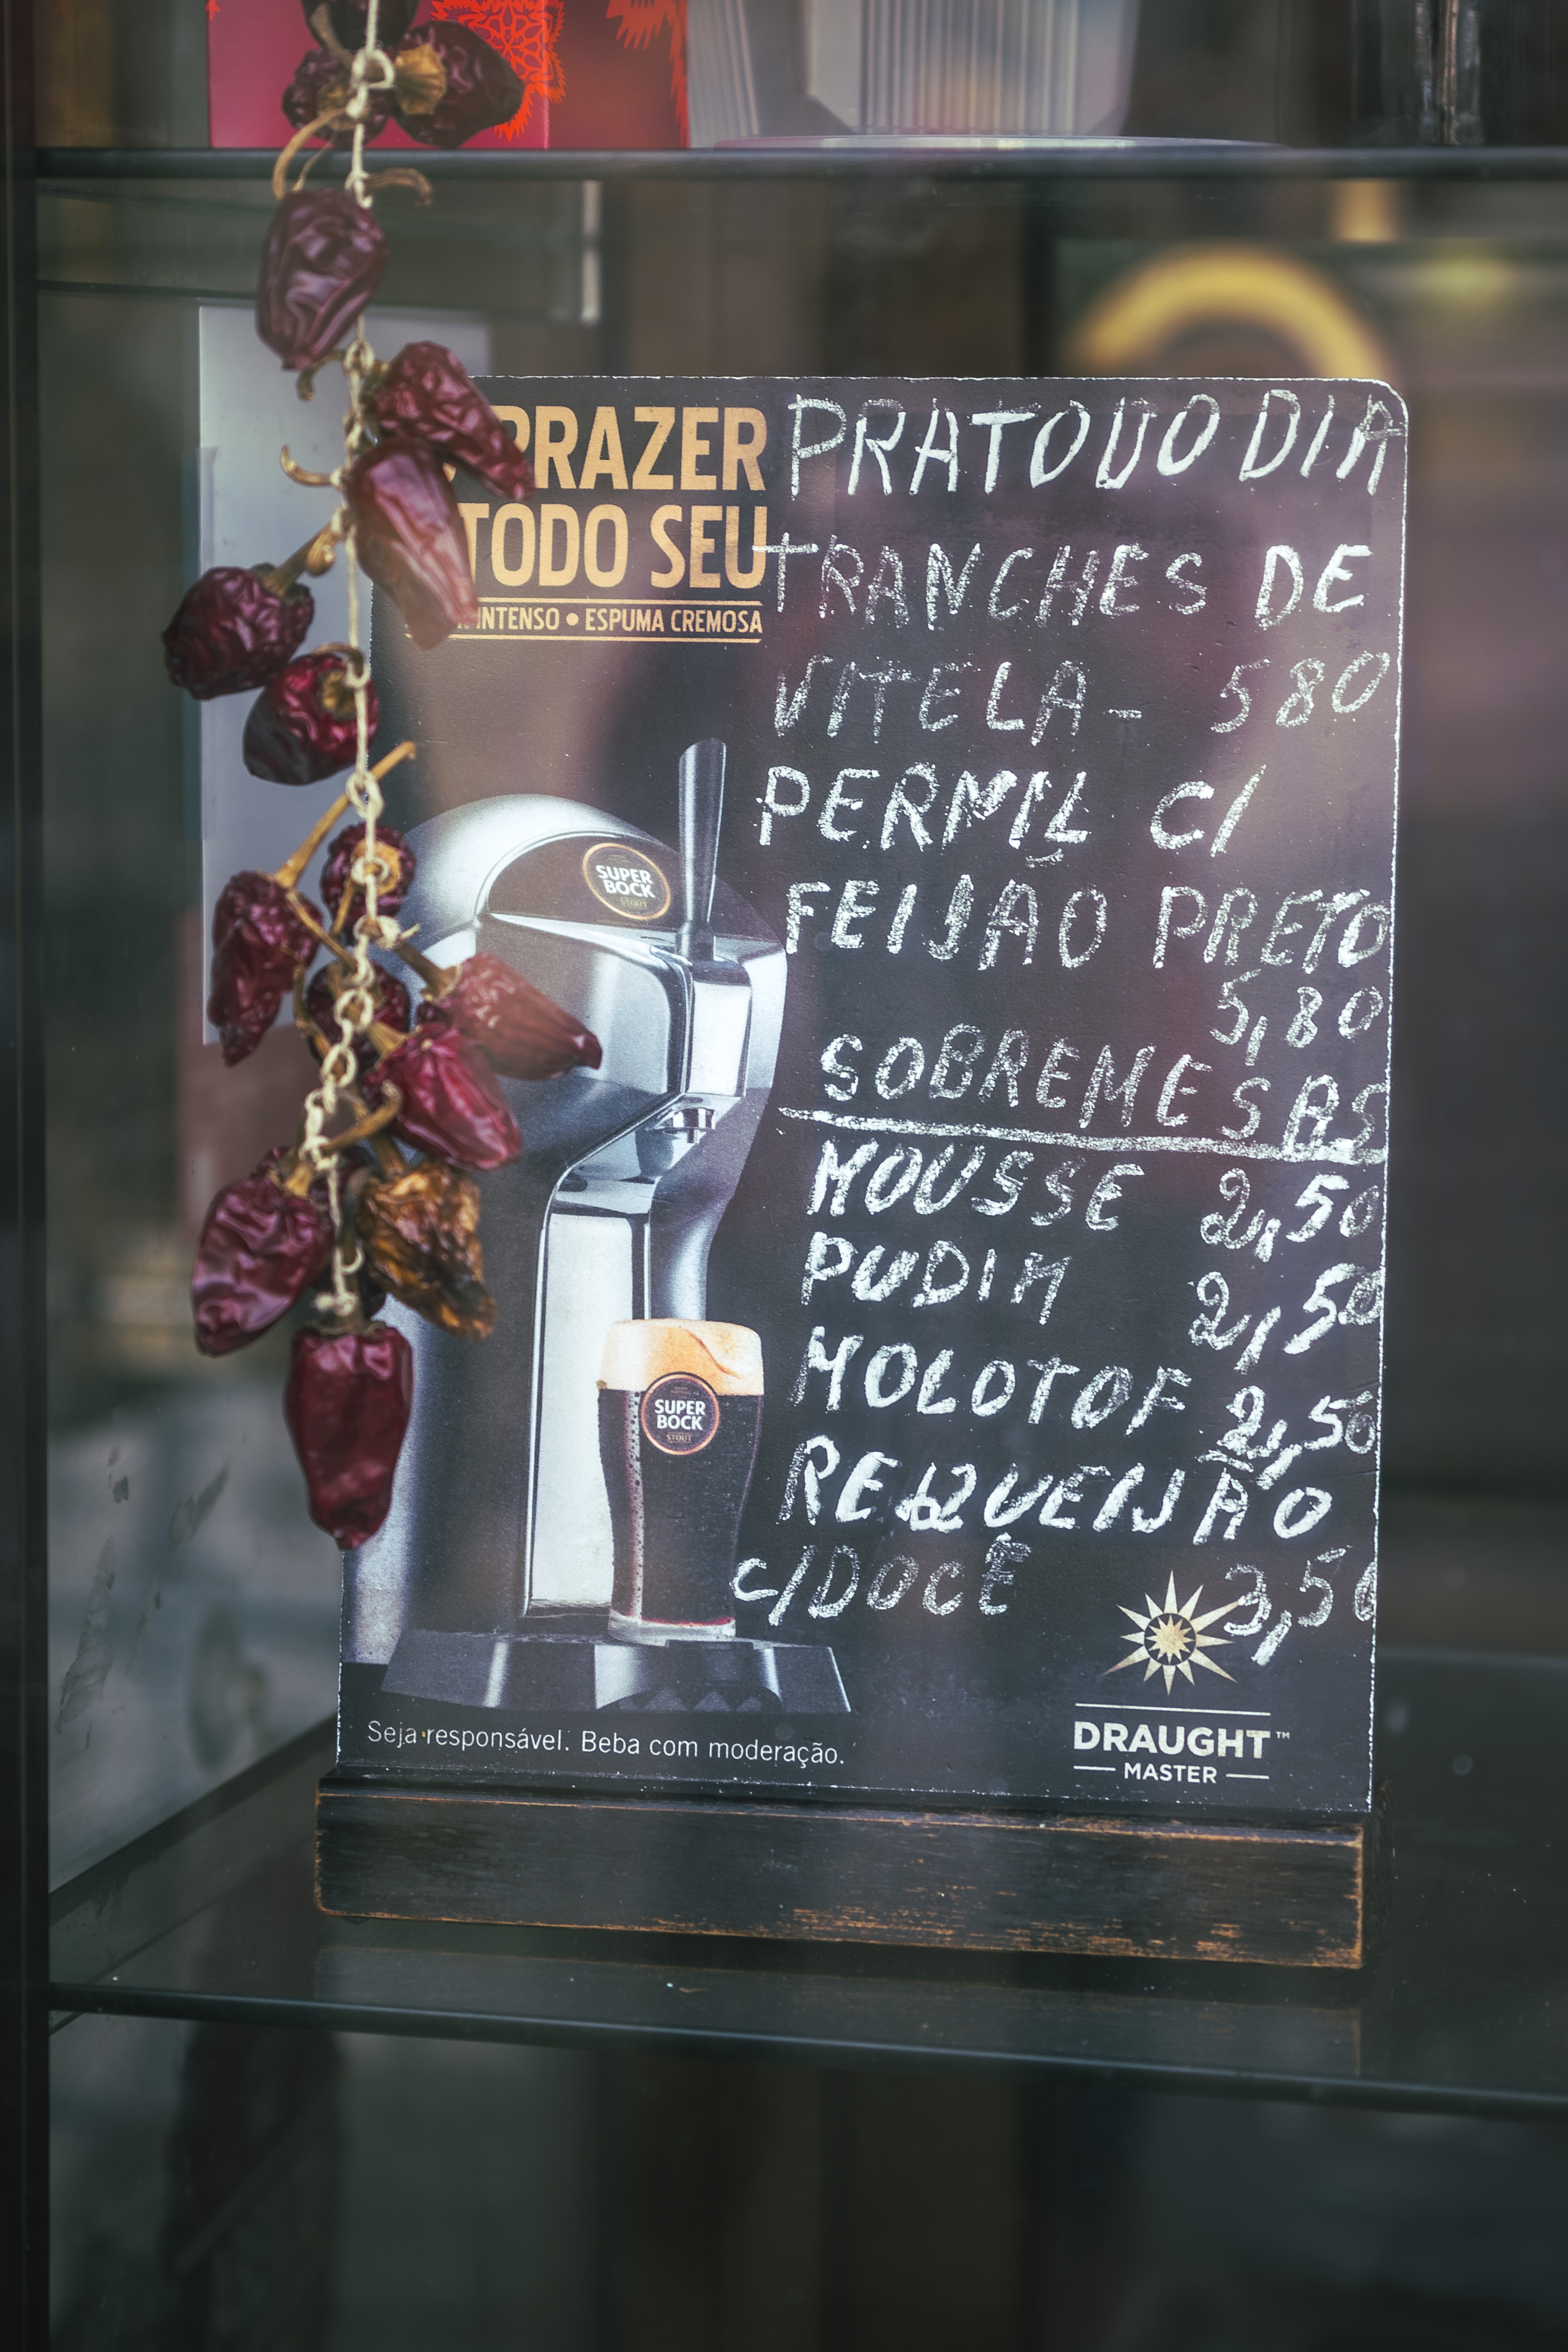 PRAZER
TODO SEU
INTENSO • ESPUMA CREMOSA
PRATO DO DIA
TRANCHES DE
VITELA - 580
PERNIL C/
FEIJAO PRETO
5,80
SOBREMESAS
MOUSSE 2,50
PUDIM 2,50
MOLOTOF 2,50
REQUEIJÃO
C/DOCE 3,50
SUPER
BOCK
STOUT
SUPER
BOCK
STOUT
Seja responsável. Beba com moderação.
DRAUGHT™
MASTER